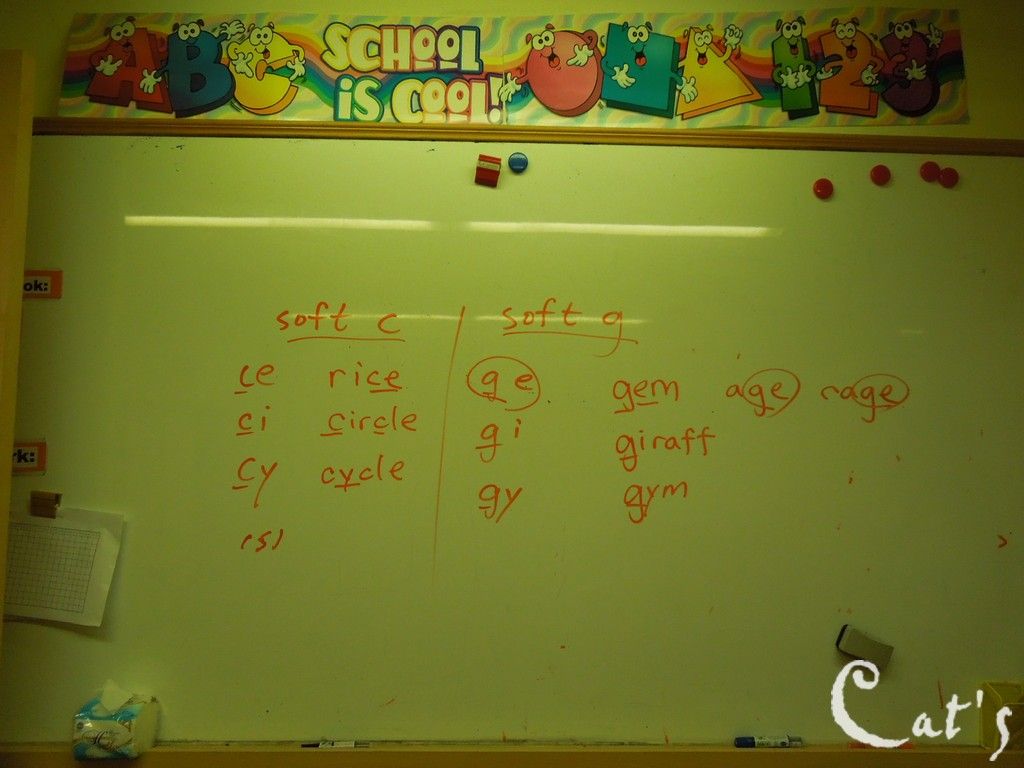 ABC SCHOOL IS COOL! 123
ok:
rk:
soft c soft g
ce rice ge gem age cage
ci circle gi giraff
cy cycle gy gym
(s)
Cat's